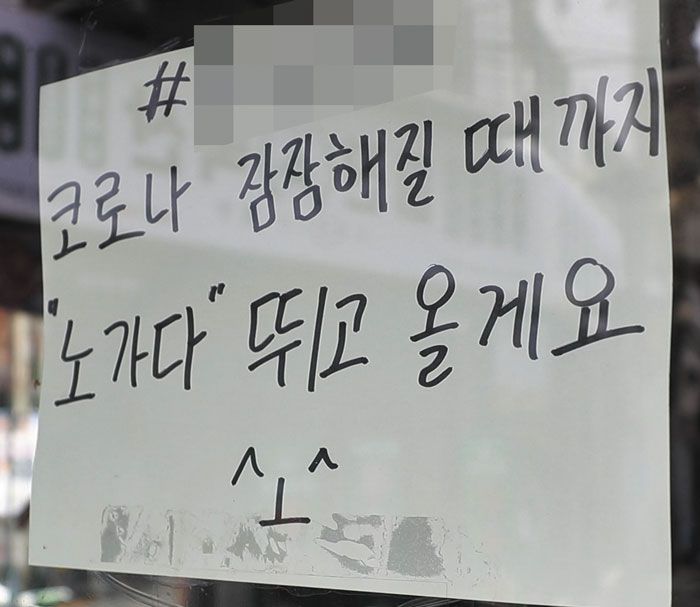 #
코로나 잠잠해질 때까지
"노가다" 뛰고 올게요
^ㅗ^